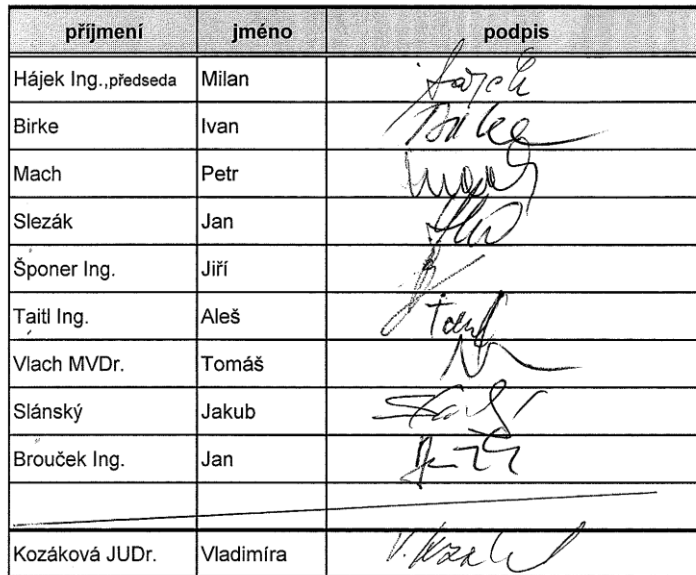 příjmení jméno podpis
Hájek Ing.,předseda Milan
Birke Ivan Birke
Mach Petr Mach
Slezák Jan
Šponer Ing. Jiří
Taitl Ing. Aleš
Vlach MVDr. Tomáš
Slánský Jakub
Brouček Ing. Jan
Kozáková JUDr. Vladimíra